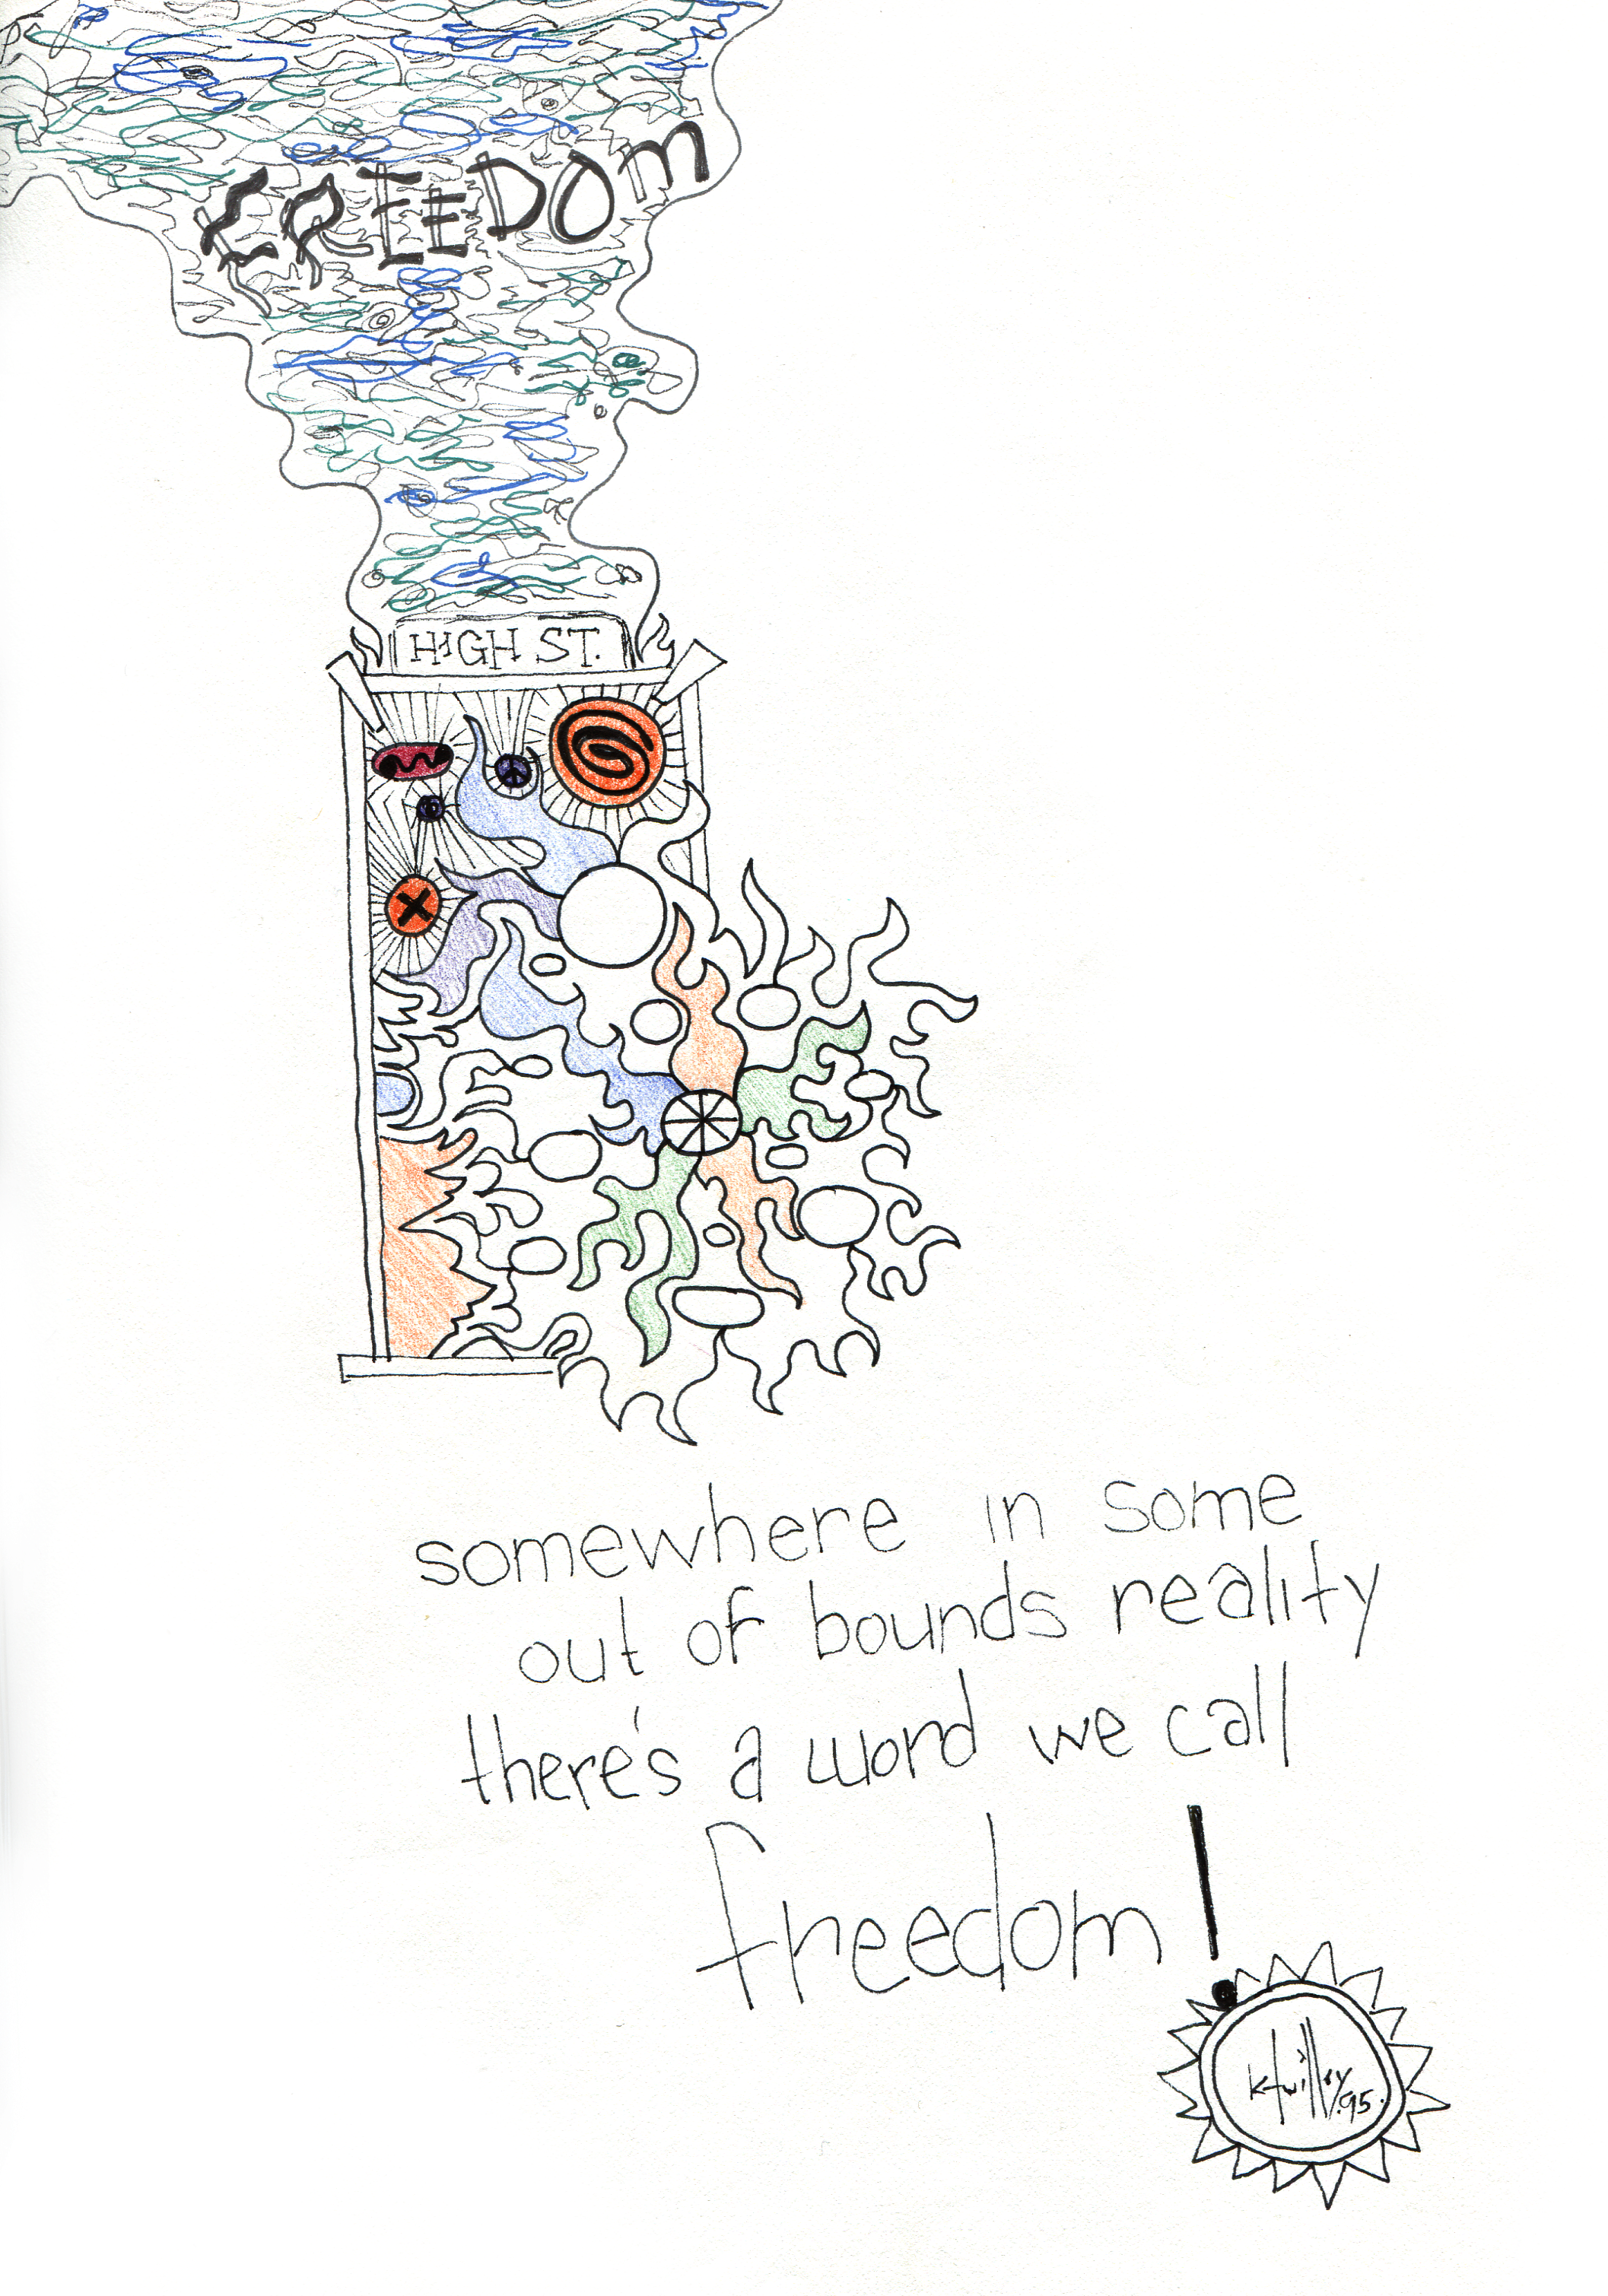 FREEDOM
HIGH ST.
somewhere in some
out of bounds reality
there's a word we call
freedom!
ktwilley.95.